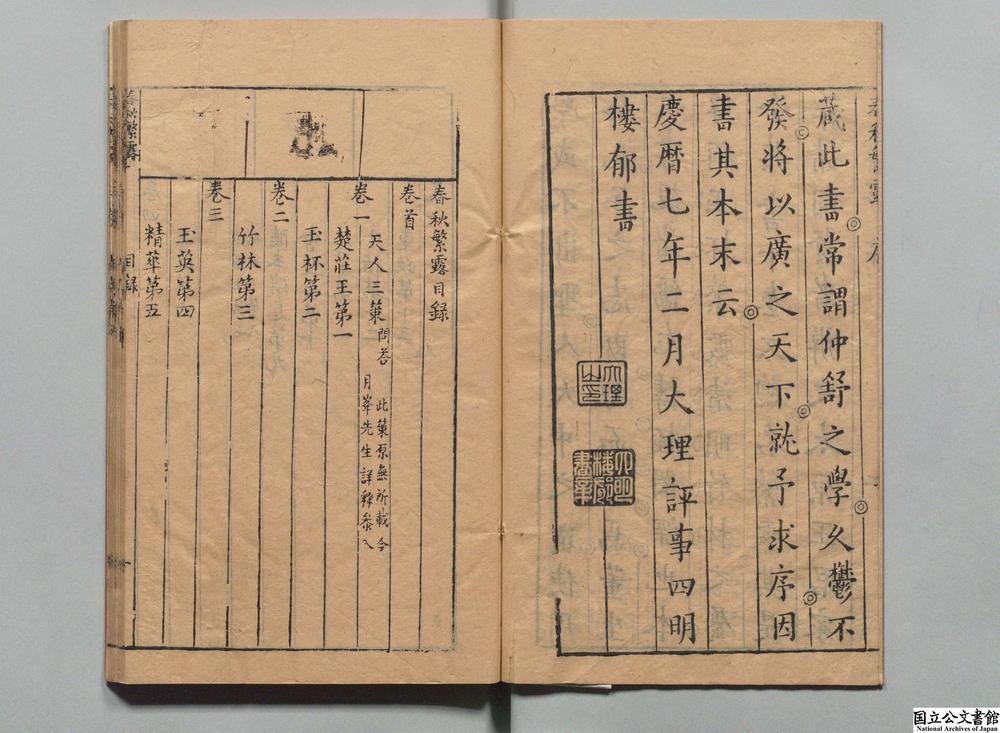 藏此書常謂仲舒之學久鬱不
發將以廣之天下就予求序因
書其本末云
慶曆七年二月大理評事四明
樓郁書
春秋繁露目錄
卷首
天人三策問荅
此策原無所載今
月峯先生詳釋叅入
卷一
楚莊王第一
玉杯第二
卷二
竹林第三
卷三
玉英第四
精華第五
春秋繁露
目錄
国立公文書館
National Archives of Japan